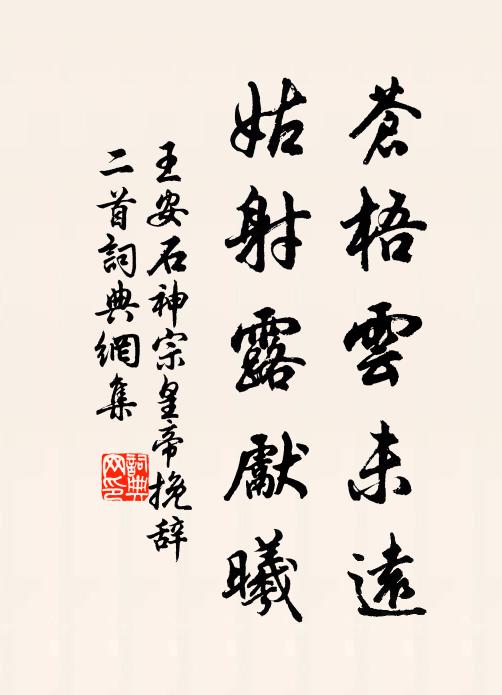 蒼梧雲未遠
姑射露獻曦
王安石神宗皇帝挽辞
二首詞典網集
詞典
网印